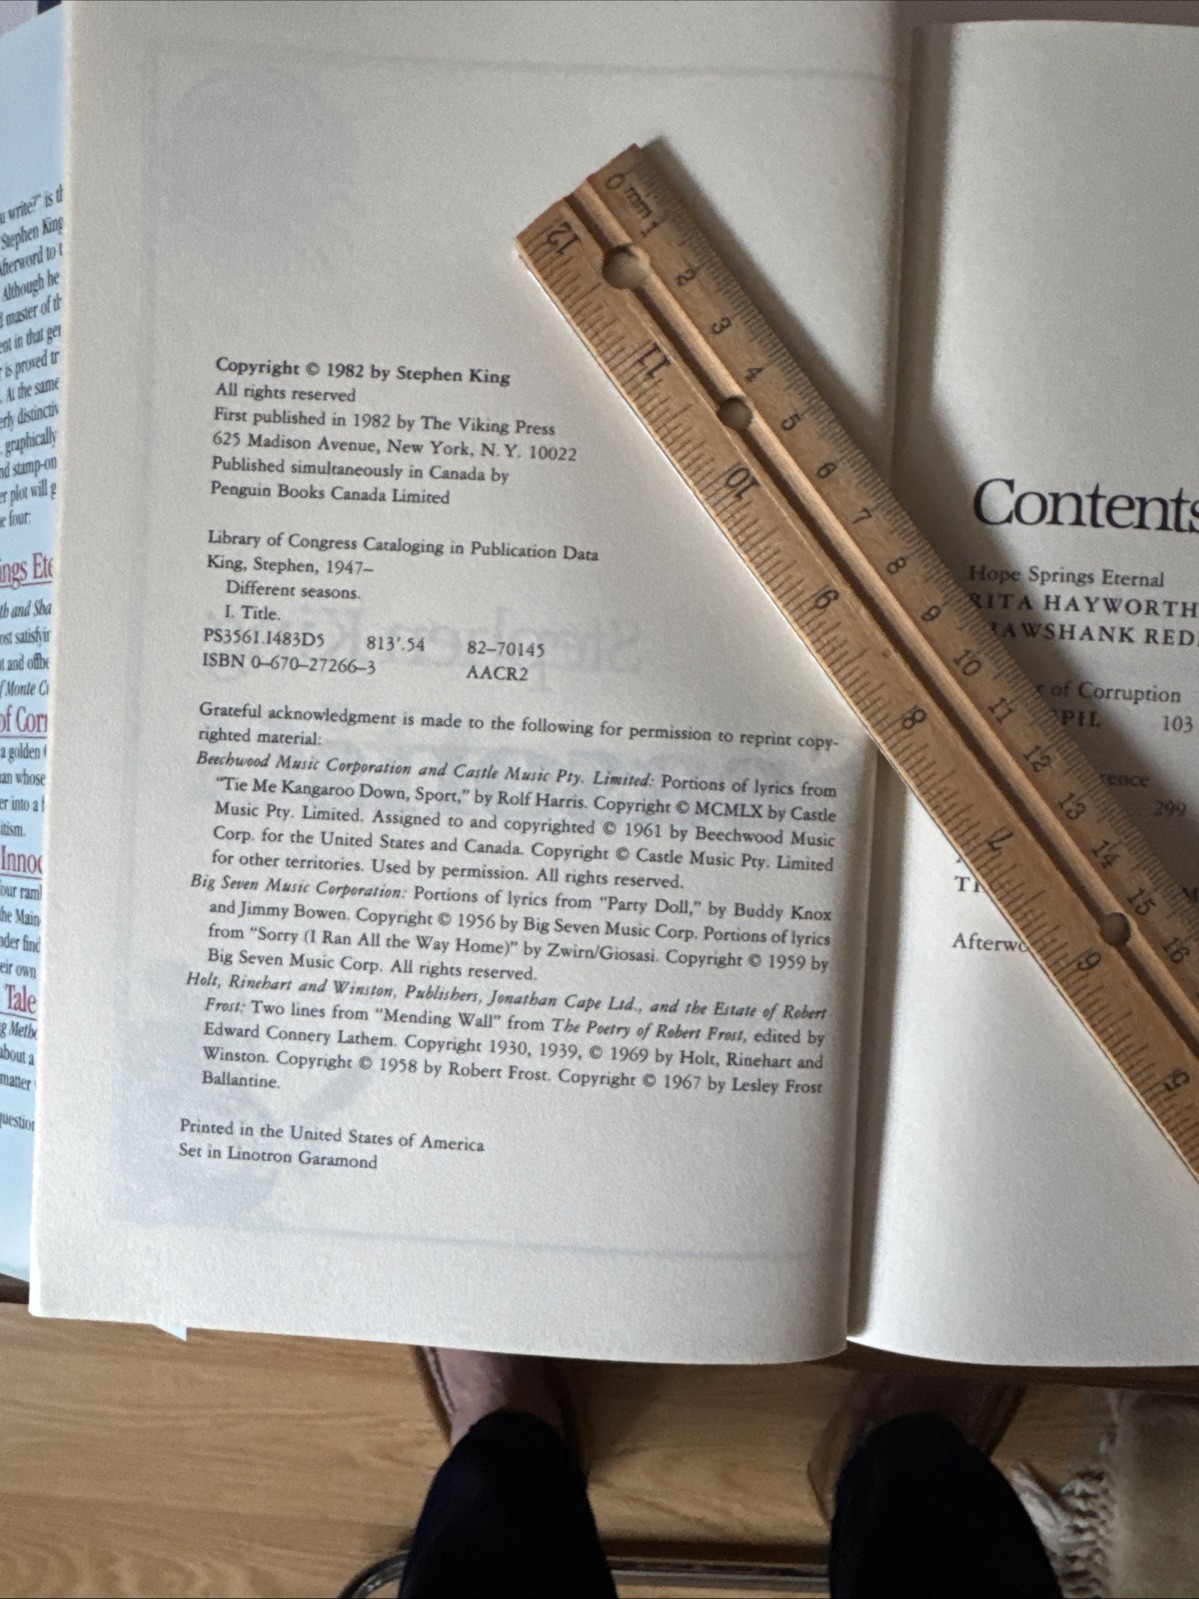 u write?" is th
Stephen King
Afterword to t
Although he
master of th
ent in that ger
is proved tr
At the same
erly distinctiv
graphically
nd stamp-on
er plot will g
e four:
ings Ete
th and Sha
ost satisfyin
t and offbe
f Monte Cr
of Corr
a golden
an whose
er into a f
itism.
Innoc
our raml
he Main
nder find
eir own
Tale
g Metho
about a
matter
question
Copyright © 1982 by Stephen King
All rights reserved
First published in 1982 by The Viking Press
625 Madison Avenue, New York, N.Y. 10022
Published simultaneously in Canada by
Penguin Books Canada Limited
Library of Congress Cataloging in Publication Data
King, Stephen, 1947–
Different seasons.
I. Title.
PS3561.I483D5 813'.54 82–70145
ISBN 0–670–27266–3 AACR2
Grateful acknowledgment is made to the following for permission to reprint copy-
righted material:
Beechwood Music Corporation and Castle Music Pty. Limited: Portions of lyrics from
"Tie Me Kangaroo Down, Sport," by Rolf Harris. Copyright © MCMLX by Castle
Music Pty. Limited. Assigned to and copyrighted © 1961 by Beechwood Music
Corp. for the United States and Canada. Copyright © Castle Music Pty. Limited
for other territories. Used by permission. All rights reserved.
Big Seven Music Corporation: Portions of lyrics from "Party Doll," by Buddy Knox
and Jimmy Bowen. Copyright © 1956 by Big Seven Music Corp. Portions of lyrics
from "Sorry (I Ran All the Way Home)" by Zwirn/Giosasi. Copyright © 1959 by
Big Seven Music Corp. All rights reserved.
Holt, Rinehart and Winston, Publishers, Jonathan Cape Ltd., and the Estate of Robert
Frost: Two lines from "Mending Wall" from The Poetry of Robert Frost, edited by
Edward Connery Lathem. Copyright 1930, 1939, © 1969 by Holt, Rinehart and
Winston. Copyright © 1958 by Robert Frost. Copyright © 1967 by Lesley Frost
Ballantine.
Printed in the United States of America
Set in Linotron Garamond
0 mm 1 2 3 4 5 6 7 8 9 10 11 12 13 14 15 16
12 11 10 9 8 7 6 5
Contents
Hope Springs Eternal
RITA HAYWORTH
AWSHANK RED
of Corruption
PIL 103
rence
299
M
Afterwo